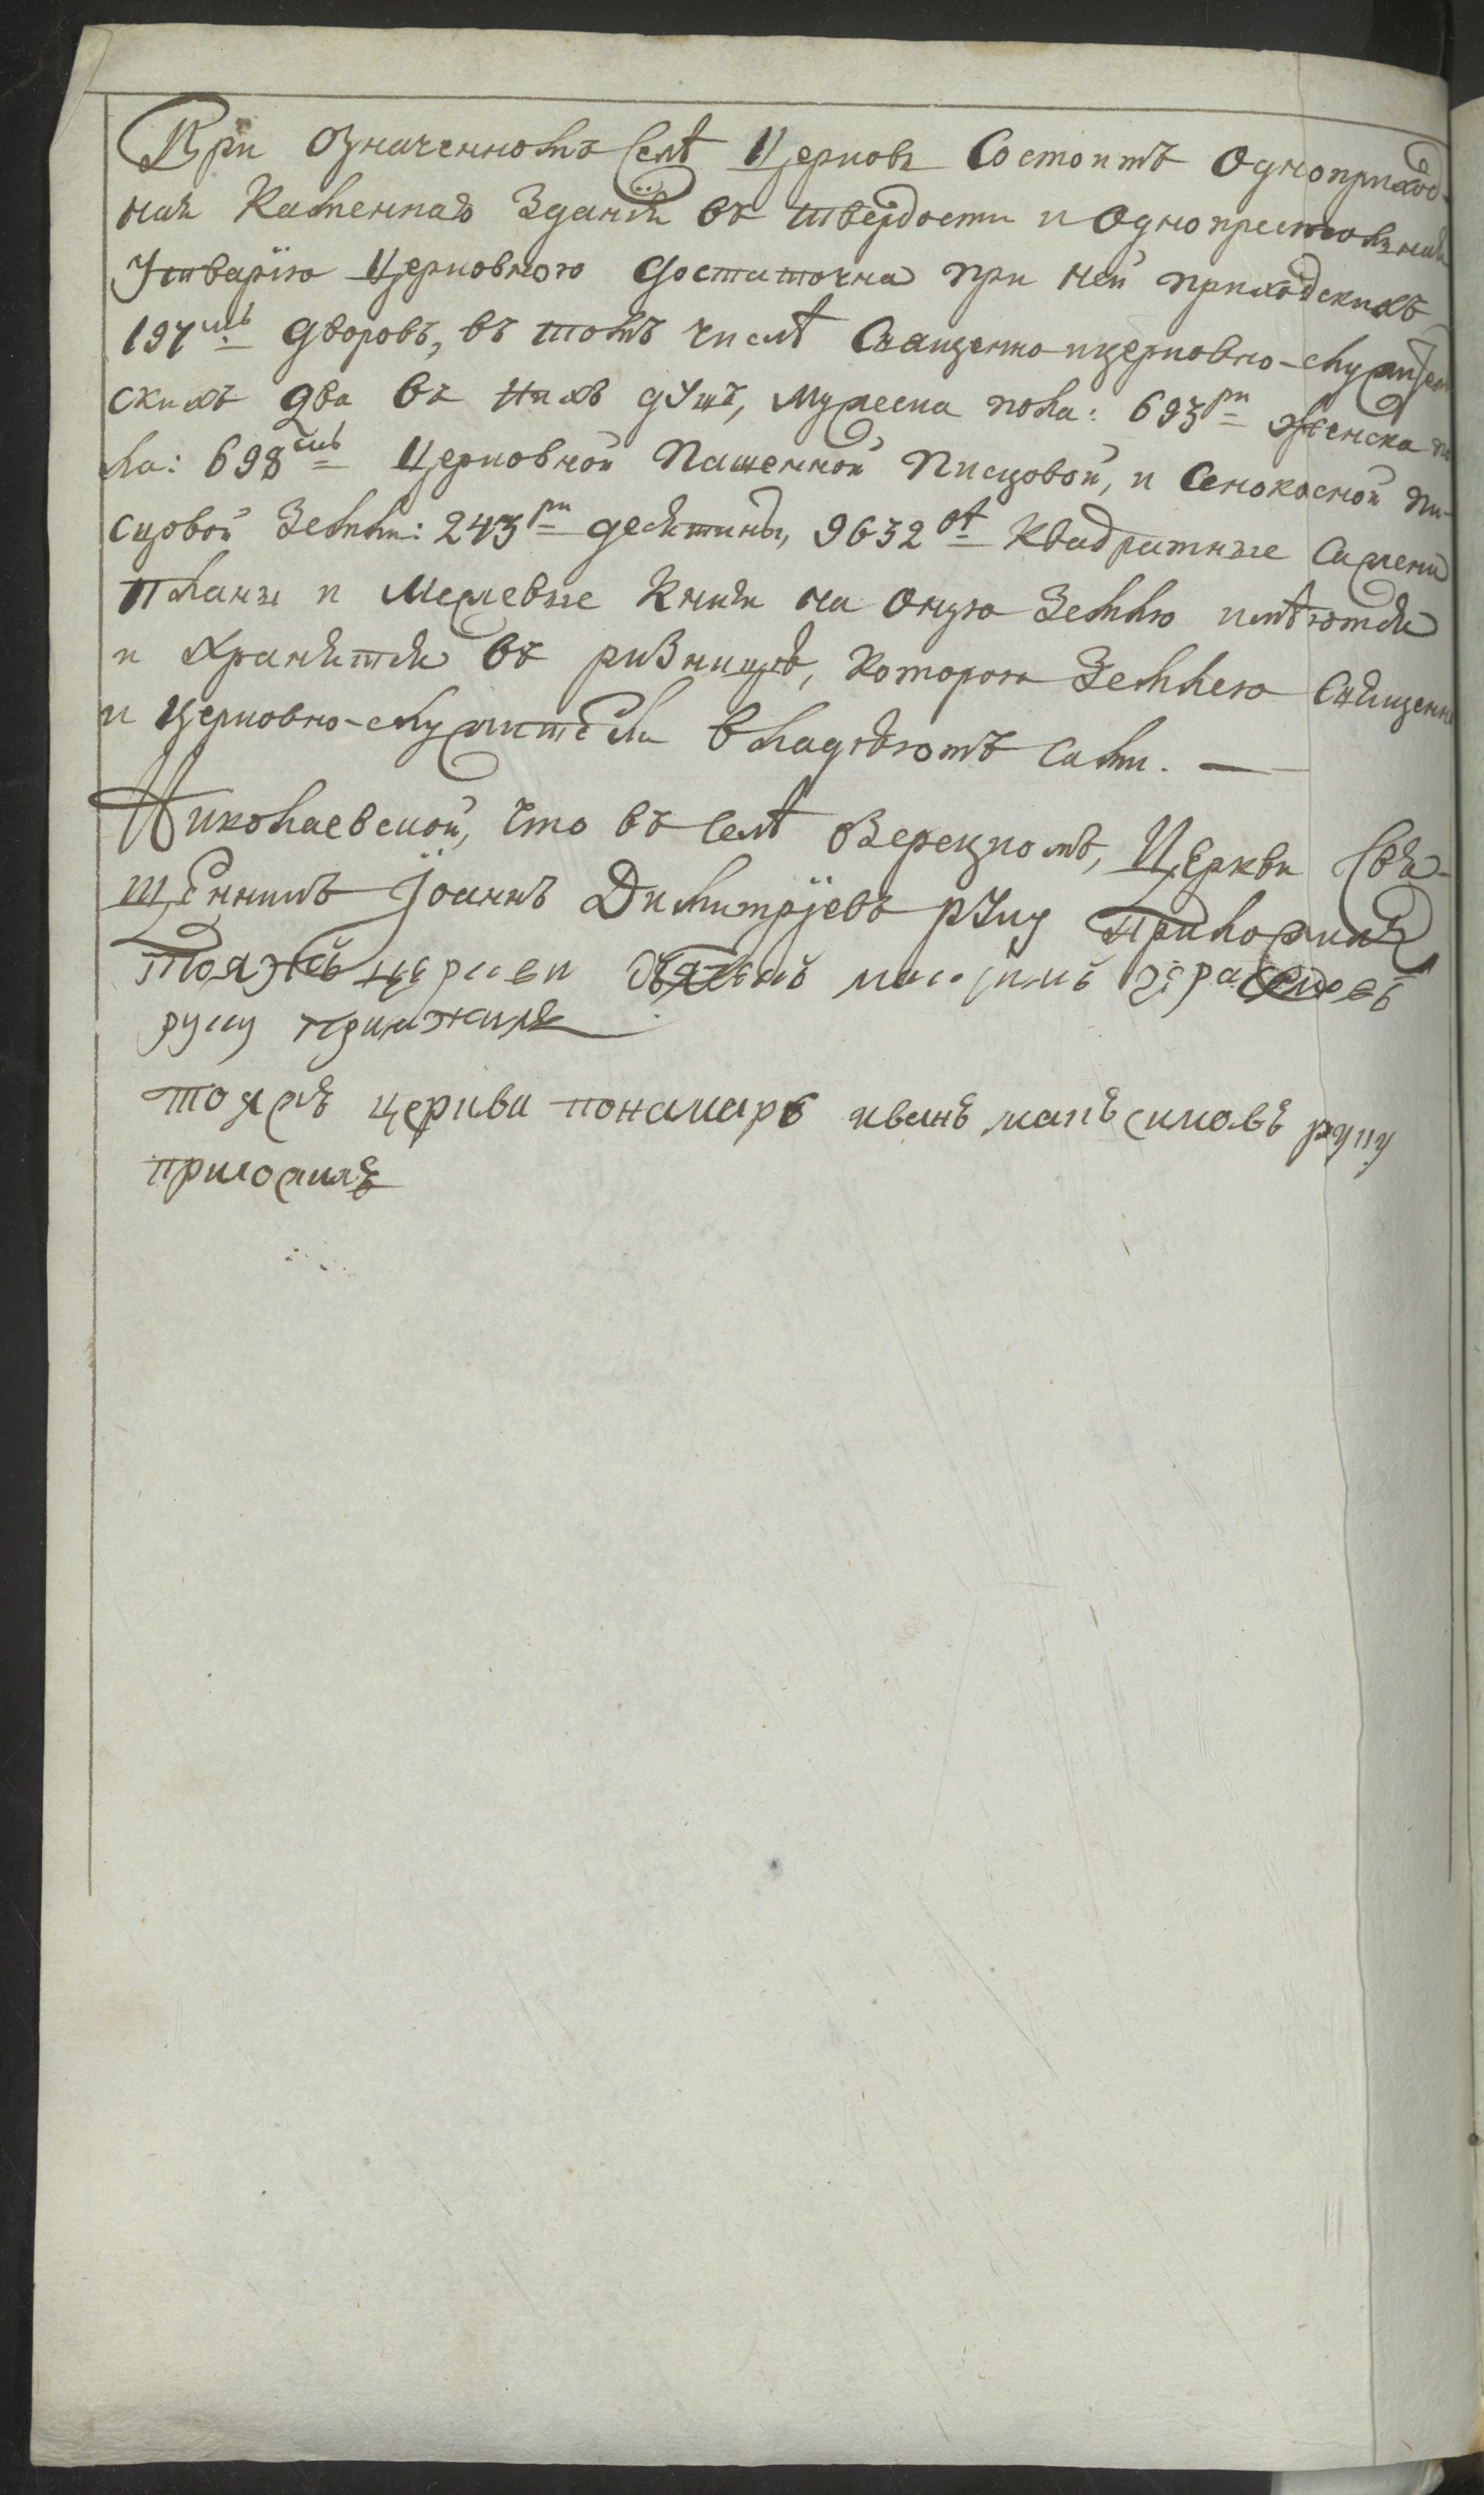 При означенномъ селѣ Церковь состоитъ одноприход-
ная каменнаго зданїя въ твердости и однопрестольная
Утварїю церковною достаточна при ней приходскихъ
197мь дворовъ, въ томъ числѣ Священно и церковно-служитель
скихъ два въ нихъ душъ, мужеска пола: 693ри женска по
ла: 698мь Церковной пашенной писцовой, и сенокосной пи-
сцовой Земли: 243ри десятины, 9632вѣ квадратные сажени
планы и межевые книги на оную Землю имѣются
и хранятся въ ризницѣ, которою Землею священно
и церковно-служители владѣютъ сами. —
Николаевской, что въ селѣ Верецкомъ, Церкви Свя-
щенникъ Їоаннъ Димитрїевъ руку приложилъ
тояжъ церкви дьячекъ максимъ герасимовъ
руку приложилъ
тояжъ церкви пономарь иванъ максимовъ руку
приложилъ